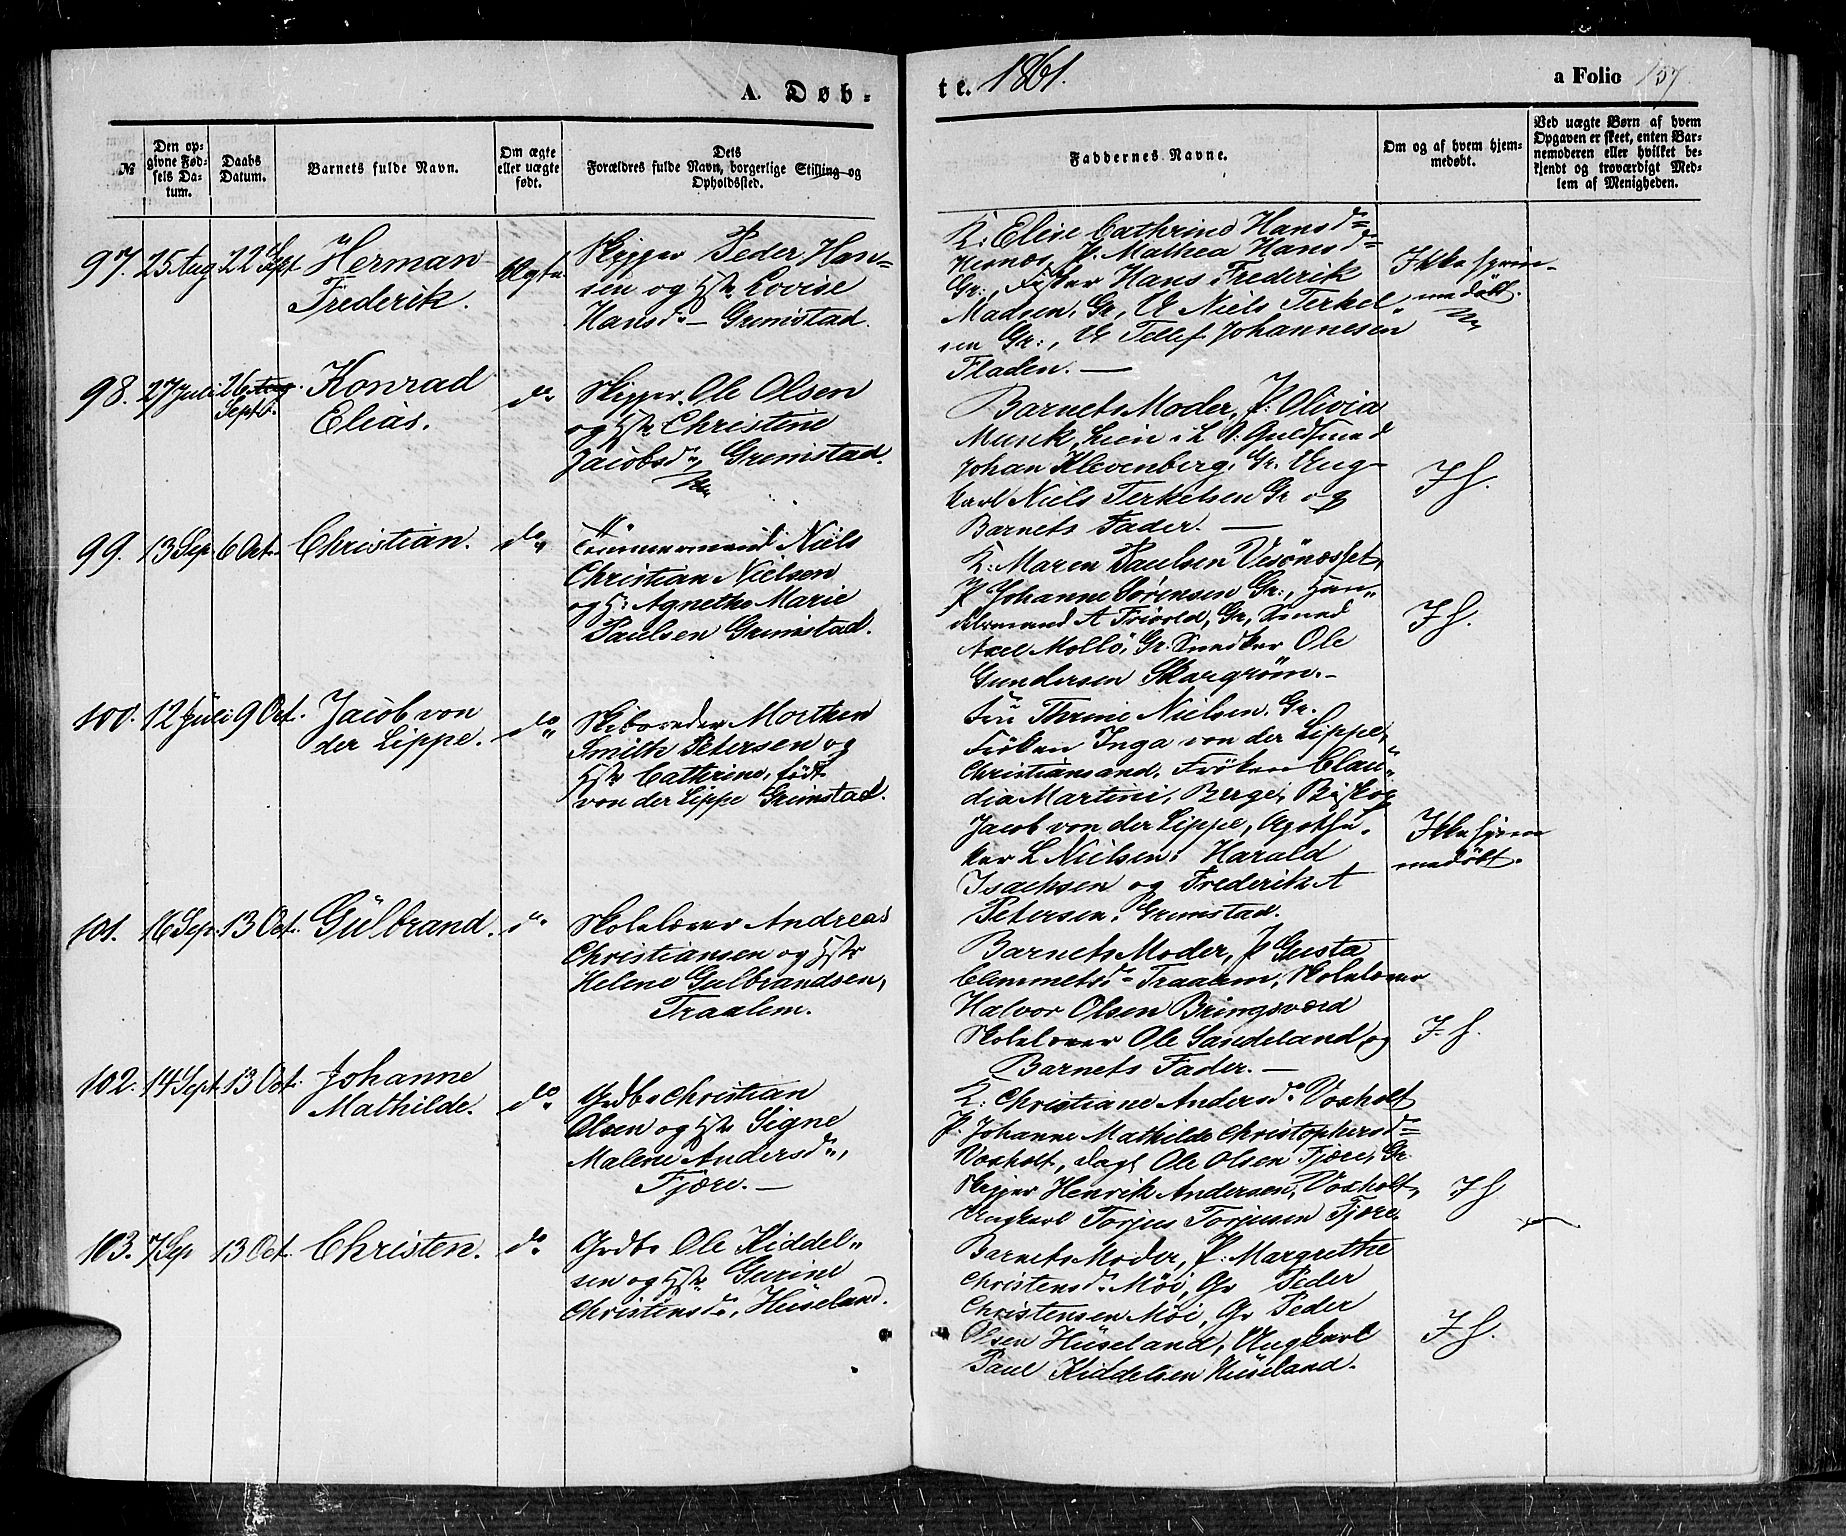 A. Døb-
te. 1861.
a Folio 157
№
Den op-
givne Fød-
sels Da-
tum.
Daabs
Datum.
Barnets fulde Navn.
Om ægte
eller uægte
født.
Dets
Forældres fulde Navn, borgerlige Stilling og
Opholdssted.
Faddernes Navne.
Om og af hvem hjem-
medøbt.
Ved uægte Børn af hvem
Opgaven er skeet, enten Bar-
nemoderen eller hvilket be-
kjendt og troværdigt Med-
lem af Menigheden.
97. 25 Aug 22 Sept Herman
Frederik.
Ægte
Skipper Peder Han-
sen og Hstr Lovise
Hansd. — Grimstad.
K: Elise Cathrine Hansd=
Hesnæs, P. Mathea Hansd=
Gr:, Fisker Hans Frederik
Madsen, Gr, U Niels Terkel-
sen Gr:, U Tellef Johannesen
Fladen. —
Ikke hjem-
medøbt.
98. 27 Juli 26 Aug.
Septb.
Konrad
Elias.
do
Skipper Ole Olsen
og Hstr Christine
Jacobsd., Grimstad.
Barnets Moder, P. Olivia
Musik, Lien i L S: Guldsmed
Johan Klevenberg, Gr. Ung-
karl Niels Terkelsen Gr og
Barnets Fader. —
I H.
99. 13 Sep 6 Oct. Christian.
do
Tømmermand Niels
Christian Nielsen
og H: Agnethe Marie
Paulsen Grimstad.
K: Maren Paulsen Vesönæsset,
P Johanne Sørensen Gr:, Han-
delsmand A Frivold, Gr, Smed
Axel Mollö, Gr. Snedker Ole
Gundersen Skargrøm. —
I H.
100. 12 Juli 9 Oct. Jacob von
der Lippe.
do
Skibsreder Morthen
Smith Petersen og
Hstr Cathrine, født
von der Lippe Grimstad.
Fru Thrine Nielsen, Gr.
Frøken Inga von der Lippe,
Christiansand, Frøken Clau-
dia Martini, Berge, Biskop
Jacob von der Lippe, Apothe-
ker L Nielsen, Harald
Isachsen og Frederik A
Petersen, Grimstad.
Ikke hjem
medøbt.
101. 16 Sep. 13 Oct. Gulbrand.
do
Skolelærer Andreas
Christiansen og Hstr
Helene Gulbrandsen,
Traalem.
Barnets Moder, P Gusta
Clemmetsd. Traalem, Skolelærer
Halvor Olsen Bringsværd
Skolelærer Ole Sandeland, og
Barnets Fader. —
I. H.
102. 14 Sept. 13 Oct. Johanne
Mathilde.
do
Grdb. Christian
Olsen og Hstr Signe
Malene Andersd.,
Fjære. —
K: Christiane Andersd. Voxholt
P. Johanne Mathilde Christophersd=
Voxholt, Dagl Ole Olsen Fjære, Gr.
Skipper Henrik Andersen, Voxholt,
Ungkarl Torjus Torjusen Fjære.
I H
103. 7 Sep 13 Oct. Christen.
do
Grdb. Ole Kiddel-
sen og Hstr Gurine
Christensd., Huseland.
Barnets Moder, P: Margrethe
Christensd. Möi, Gr Peder
Christensen Möi, Gr Peder
Olsen Huseland, Ungkarl
Paul Kiddelsen Huseland.
I H.